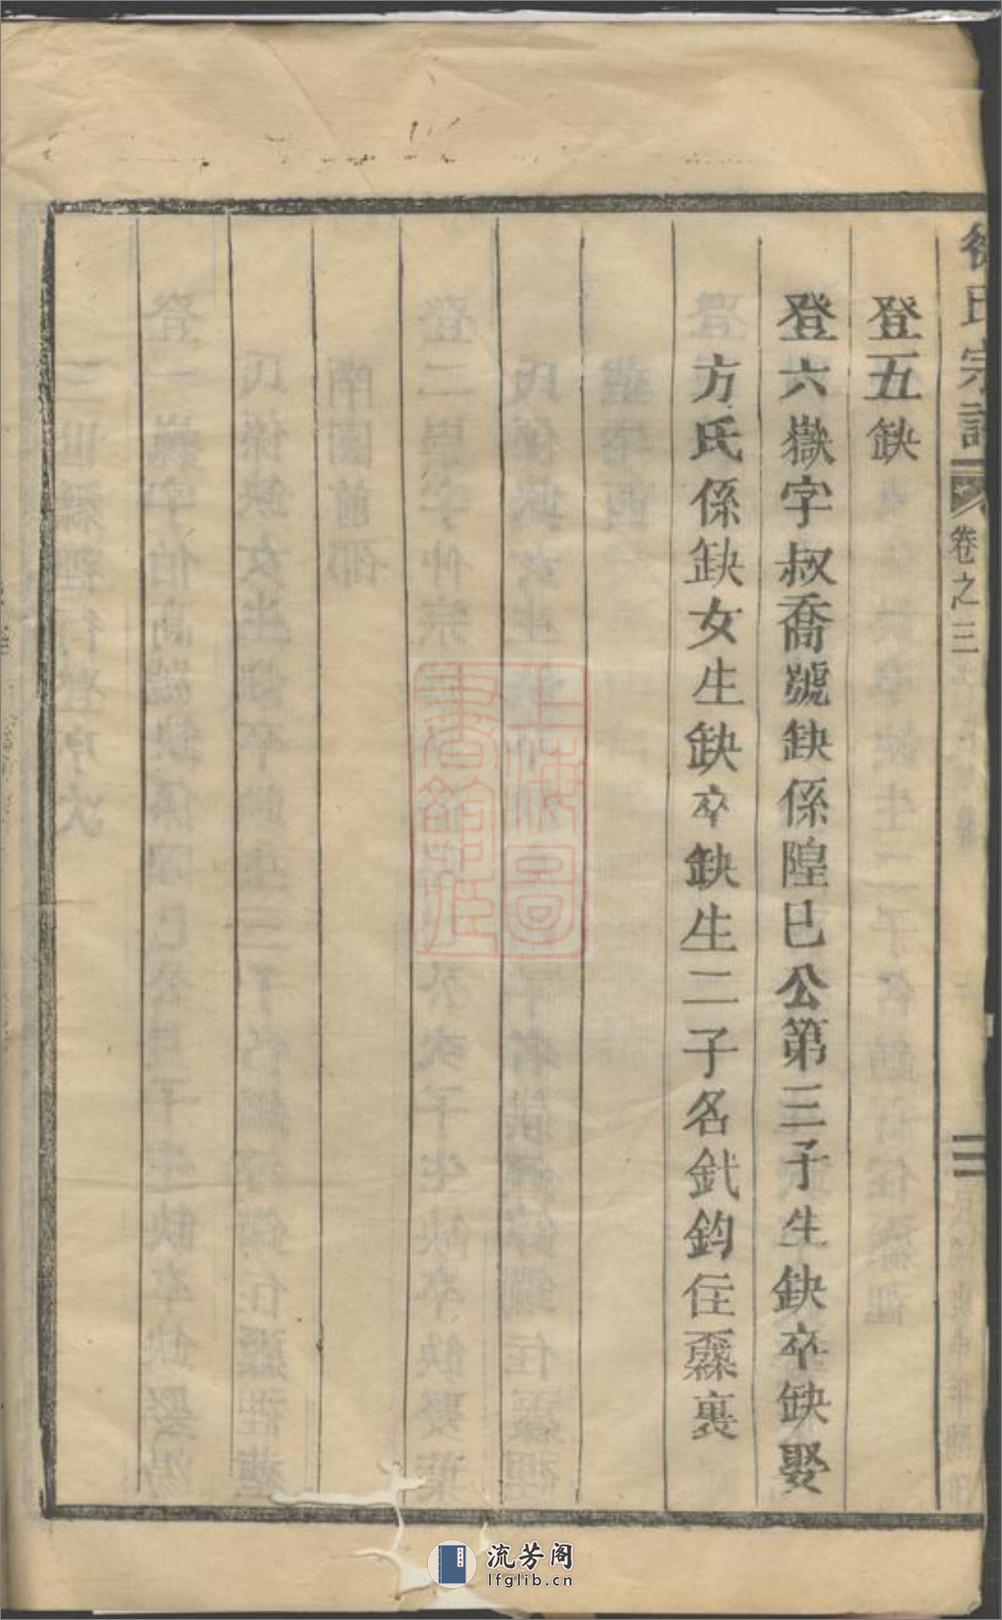 徐氏宗譜 卷之三 二
登五缺
登六嶽字叔喬號缺係隍巳公第三子生缺卒缺娶
方氏係缺女生缺卒缺生二子名釴鈞住槑裏
上海圖書館藏
流芳阁
lfglib.cn